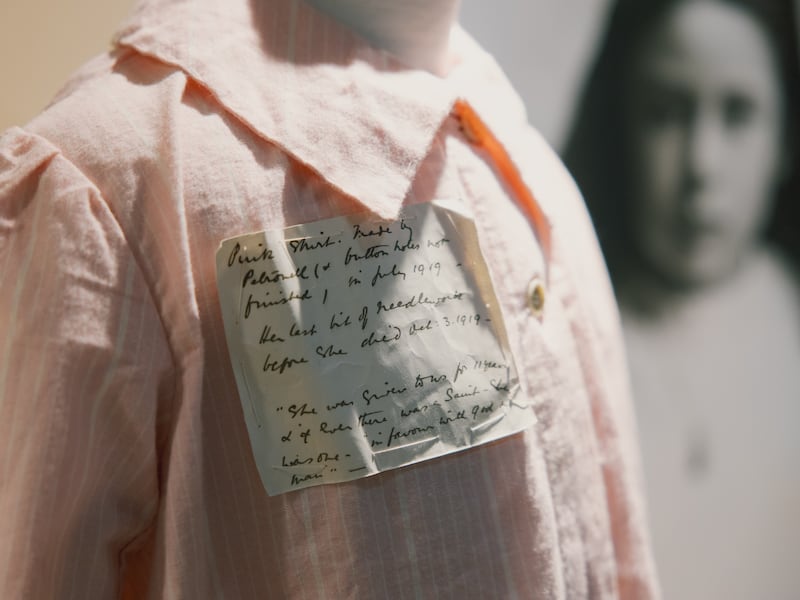 Pink Shirt. Made by
Petronell (& button holes not
finished) in July 1919 -
Her last bit of needlework
before She died Oct: 3. 1919 -
"She was given to us for 11 years
& if Ever there was a Saint - She
was one - in favour with god &
man" —